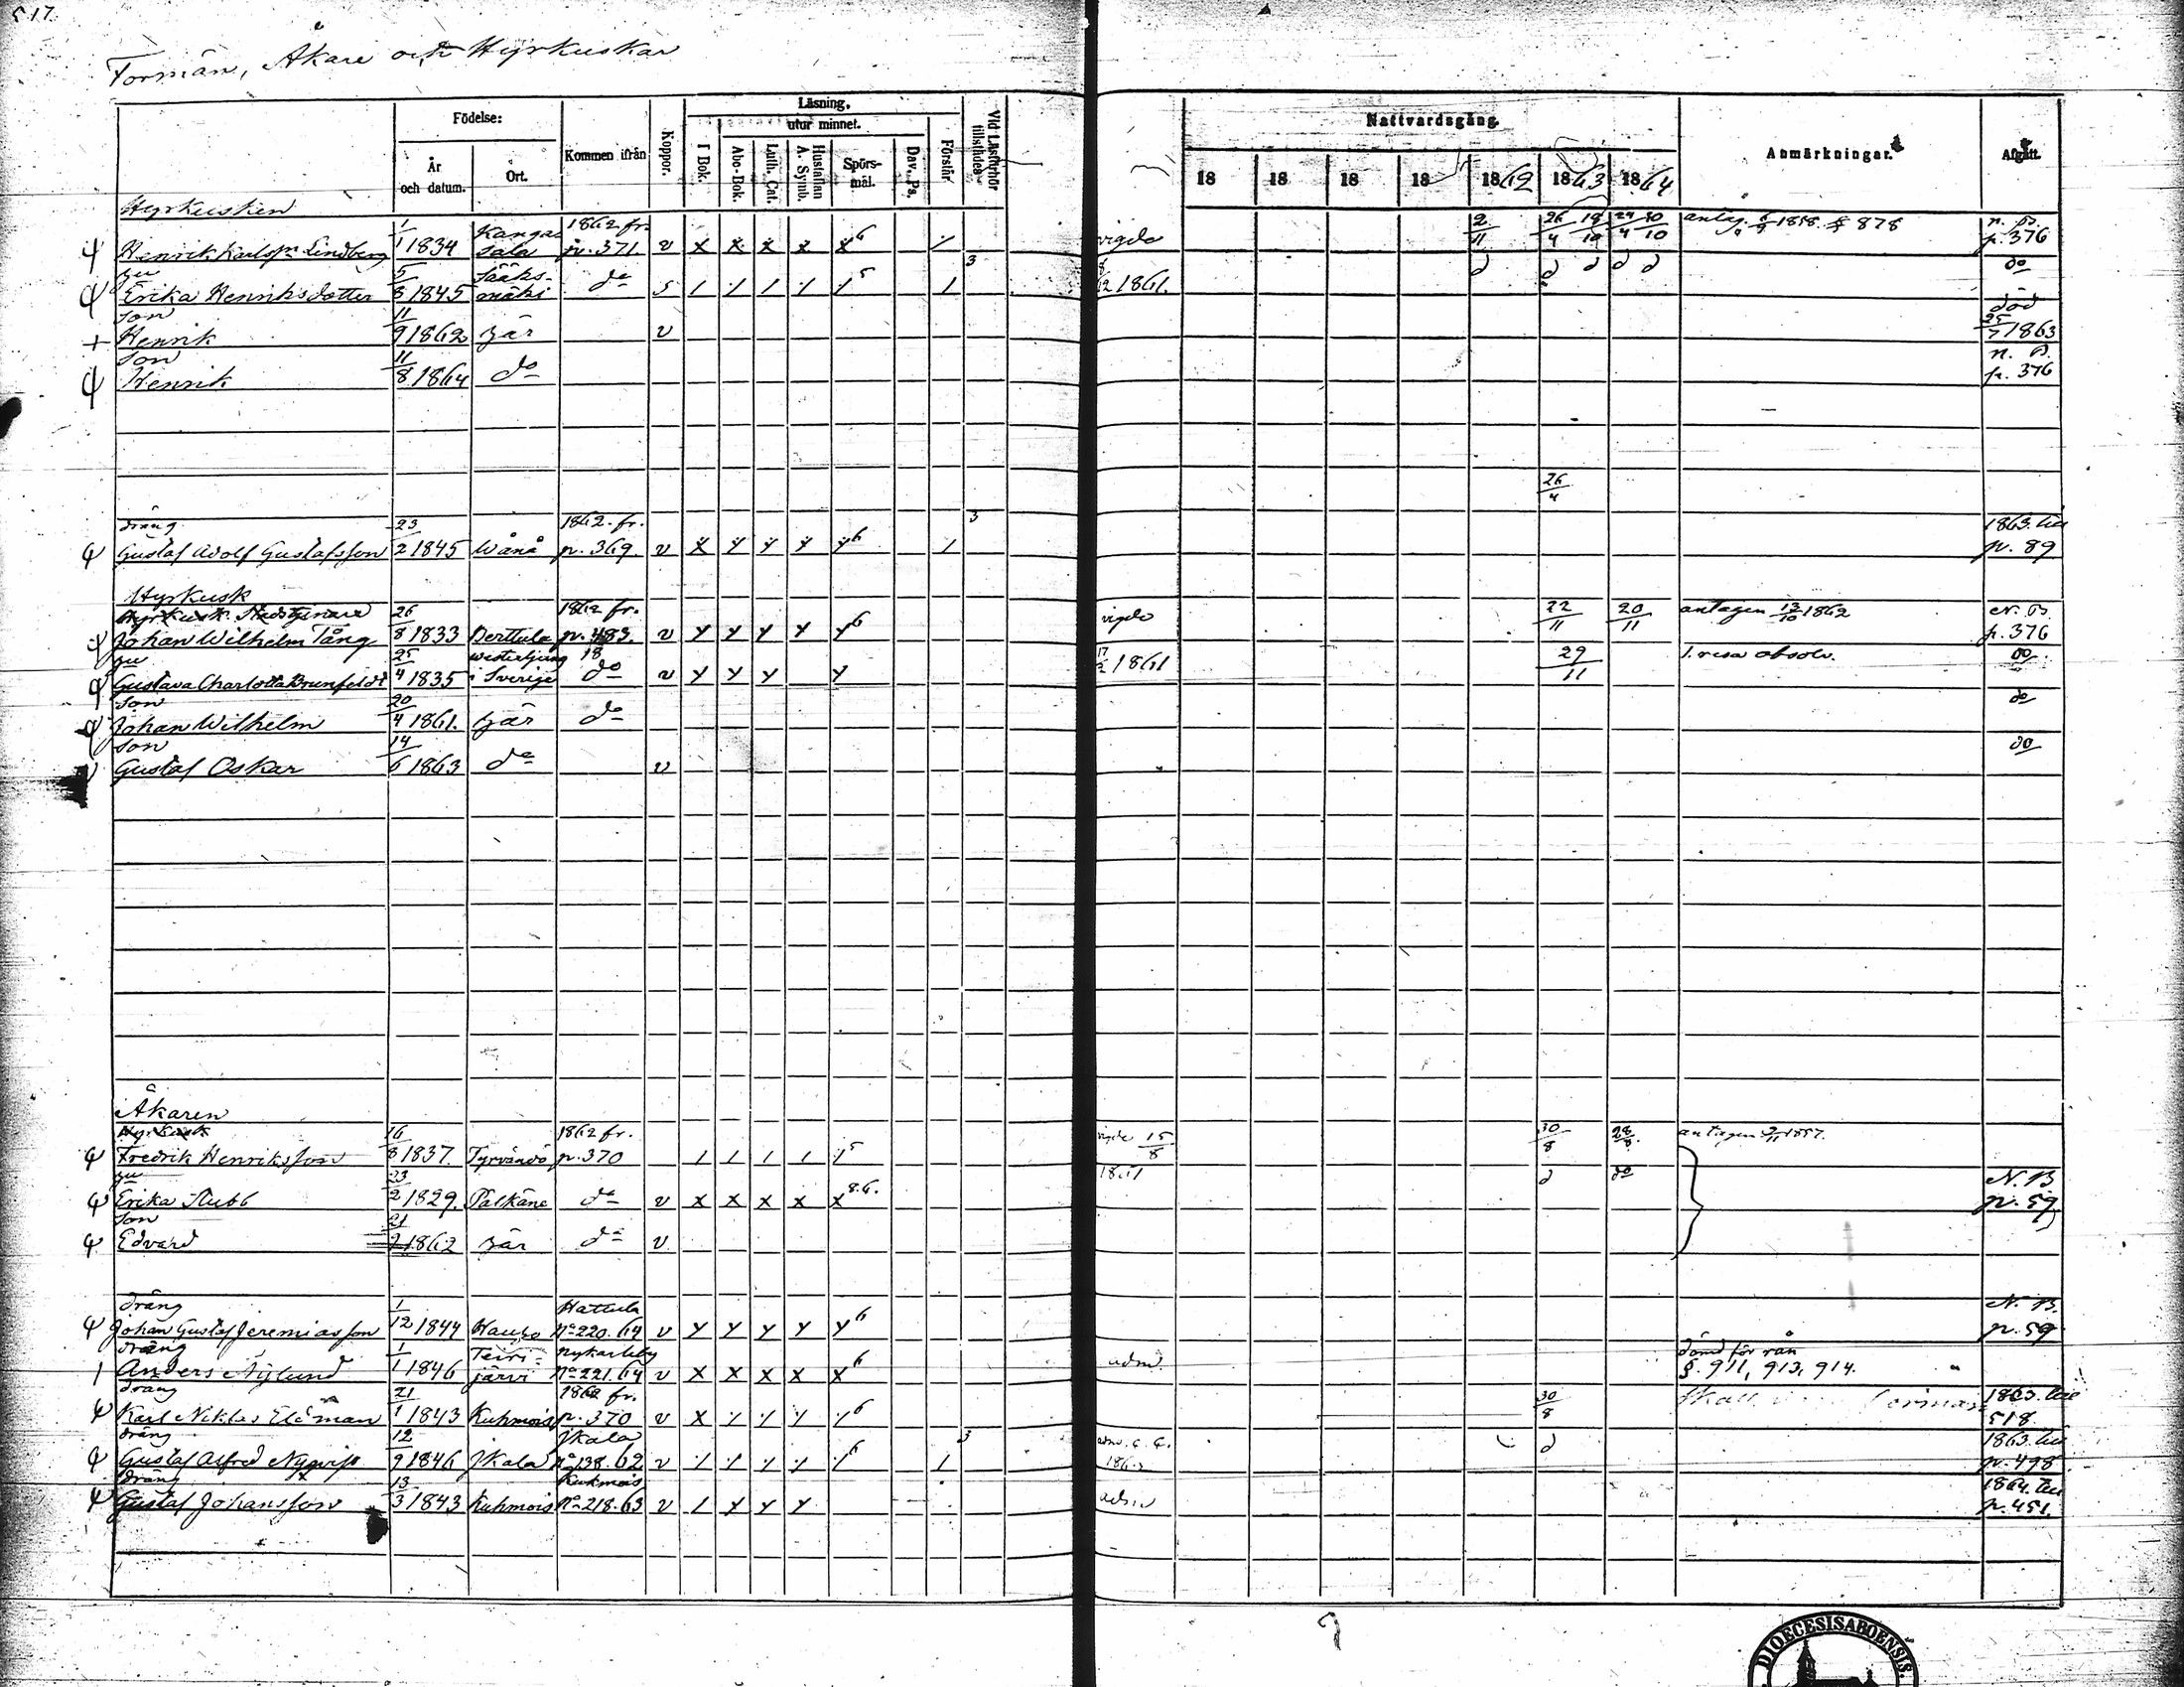 517
Formän, Åkare och Hyrkuskar
Födelse:
År och datum.
Ort.
Kommen ifrån
Koppor.
Läsning.
utur minnet.
I Bok.
Abc-Bok.
Luth. Cat.
Hustaflan A. Symb.
Spörs-mål.
Dav. Ps.
Förstår
Vid Läsförhör tillstädes
Nattvardsgång.
18 18 18 18 1862 1863 1864
Anmärkningar.
Afgått.
Hyrkusken
Henrik Karlsson Lindberg 1/1 1834 Kangasala 1862 fr. p. 371. v x x x x x 6 vigde 2/11 26/4 18/10 24/4 30/10 n. B. p. 376
hu
Erika Henriksdotter 5/8 1845 Sääksmäki do 5 3 1861. do
son
Henrik 11/9 1862 här v död 25/7 1863
son
Henrik 11/8 1864 do n. B. p. 376
26/4
dräng
Gustaf Adolf Gustafsson 23/2 1845 Wånå 1862. fr. p. 369. v 6 3 1863. till p. 89
Hyrkusk
Johan Wilhelm Tång 26/8 1833 Berttula 1862 fr. p. 483. v 6 vigde 22/11 20/11 antagen 13/10 1862 N. B. p. 376
hu
Gustava Charlotta Brunfeldt 25/4 1835 i Sverige do v 1861 29/11 1. resa absolv. do
son
Johan Wilhelm 20/4 1861. här do do
son
Gustaf Oskar 14/6 1863 do v do
Åkaren
Hyrkusk
Fredrik Henriksson 16/8 1837. Tyrvändö 1862 fr. p. 370 5 vigde 15/8 30/8 28/8 antagen 1857.
hu
Erika Stubb 23/2 1829. Pälkäne do v x x x x x 1861 N. B. p. 59
son
Edvard 21 1862 här do v
dräng
Johan Gustaf Jeremiasson 1/12 1844 Hauho Hattula No 220. 64 v 6 N. B. p. 59
dräng
Anders Nylund 1/1 1846 Teirijärvi Nykarleby No 221. 64 v x x x x x 6 adm. dömd för rån § 911, 913, 914.
dräng
Karl Niklas 21/1 1843 Kuhmois 1862 fr. p. 370 v 6 30/8 1863. till 518
dräng
Gustaf Alfred Nyqvist 12/9 1846 Jkala Jkala No 138. 62 v 6 3 1863. till p. 498
dräng
Gustaf Johansson 13/3 1843 Kuhmois Kuhmois No 218. 63 v 1864. till p. 451.
DIOECESIS ABOENSIS.